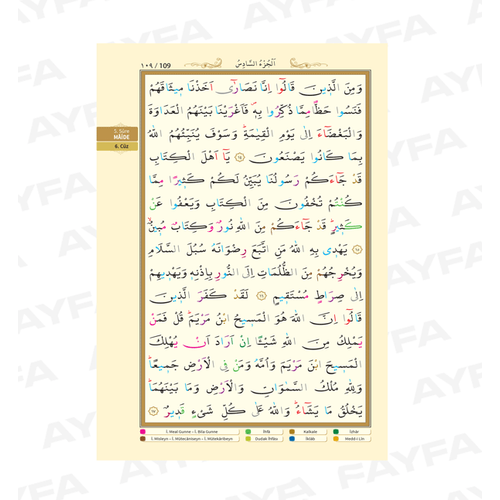 ١٠٩ / 109 اَلْجُزْءُ السَّادِسُ
5. Sûre
MÂİDE
6. Cüz
وَمِنَ الَّذ۪ينَ قَالُٓوا اِنَّا نَصَارٰٓى اَخَذْنَا م۪يثَاقَهُمْ
فَنَسُوا حَظًّا مِمَّا ذُكِّرُوا بِه۪ۖ فَاَغْرَيْنَا بَيْنَهُمُ الْعَدَاوَةَ
وَالْبَغْضَٓاءَ اِلٰى يَوْمِ الْقِيٰمَةِۜ وَسَوْفَ يُنَبِّئُهُمُ اللّٰهُ
بِمَا كَانُوا يَصْنَعُونَ ﴿١٤﴾ يَٓا اَهْلَ الْكِتَابِ
قَدْ جَٓاءَكُمْ رَسُولُنَا يُبَيِّنُ لَكُمْ كَث۪يرًا مِمَّا
كُنْتُمْ تُخْفُونَ مِنَ الْكِتَابِ وَيَعْفُوا عَنْ
كَث۪يرٍۜ قَدْ جَٓاءَكُمْ مِنَ اللّٰهِ نُورٌ وَكِتَابٌ مُب۪ينٌۙ
﴿١٥﴾ يَهْد۪ي بِهِ اللّٰهُ مَنِ اتَّبَعَ رِضْوَانَهُ سُبُلَ السَّلَامِ
وَيُخْرِجُهُمْ مِنَ الظُّلُمَاتِ اِلَى النُّورِ بِاِذْنِه۪ وَيَهْد۪يهِمْ
اِلٰى صِرَاطٍ مُسْتَق۪يمٍ ﴿١٦﴾ لَقَدْ كَفَرَ الَّذ۪ينَ
قَالُٓوا اِنَّ اللّٰهَ هُوَ الْمَس۪يحُ ابْنُ مَرْيَمَۜ قُلْ فَمَنْ
يَمْلِكُ مِنَ اللّٰهِ شَيْـًٔا اِنْ اَرَادَ اَنْ يُهْلِكَ
الْمَس۪يحَ ابْنَ مَرْيَمَ وَاُمَّهُ وَمَنْ فِي الْاَرْضِ جَم۪يعًاۜ
وَلِلّٰهِ مُلْكُ السَّمٰوَاتِ وَالْاَرْضِ وَمَا بَيْنَهُمَاۜ
يَخْلُقُ مَا يَشَٓاءُۜ وَاللّٰهُ عَلٰى كُلِّ شَيْءٍ قَد۪يرٌ ﴿١٧﴾
İhfâ Kalkale İzhâr
İklâb Medd-i Lîn
AYFA
FAYFA